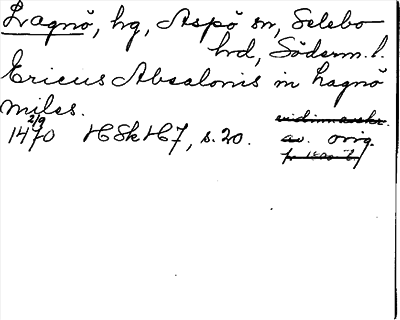 Lagnö, hg, Aspö sn, Selebo
hd, Söderm. l.
Ericus Absalonis in Lagnö
miles.
1470 2/9 HSkH7, s. 20.
vidim.avskr.
av. orig.